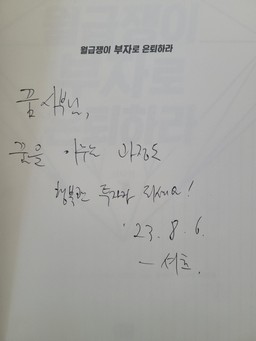 월급쟁이 부자로 은퇴하라
꿈사부님,
꿈을 이루는 과정도
행복한 투자자 되세요!
'23. 8. 6.